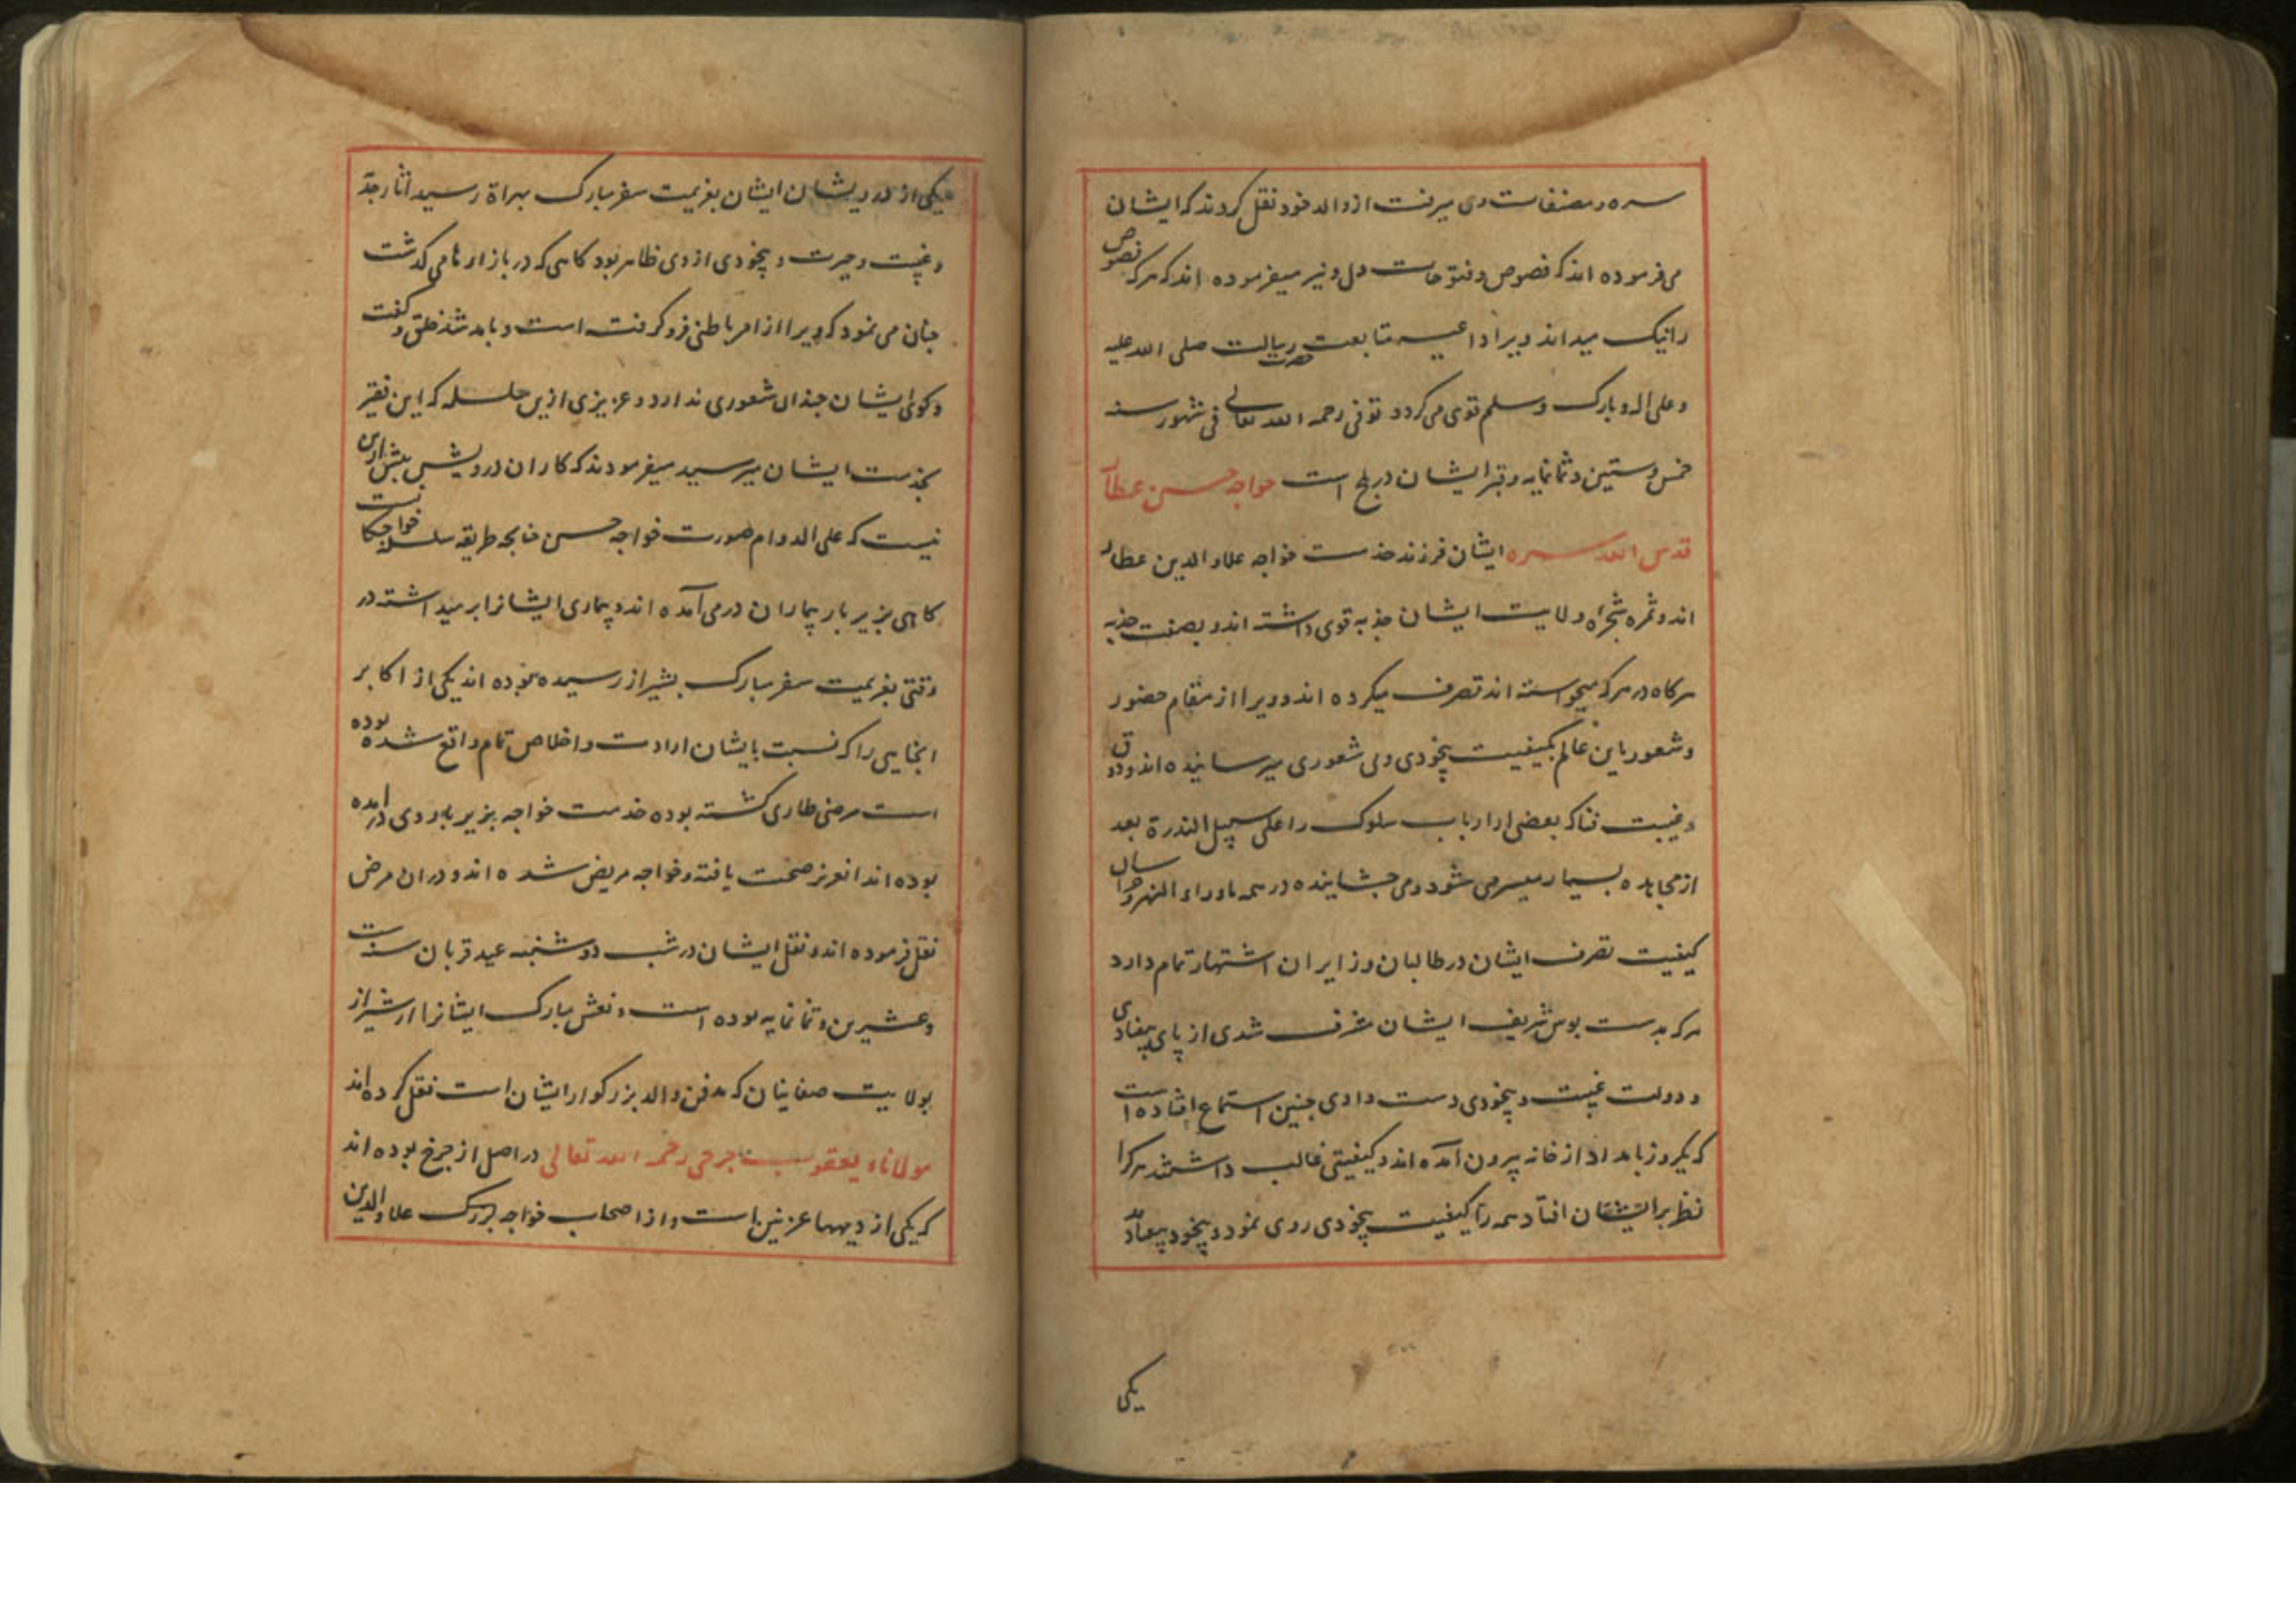 سره و مصنفات وی میرفت از والد خود نقل کردند که ایشان
می فرموده اند که فصوص جان است و فتوحات دل و نیز میفرموده اند که هر که فصوص
را نیک میداند ویرا داعیه متابعت حضرت رسالت صلی الله علیه
و علی اله و بارک و سلم قوی می گردد توفی رحمه الله تعالی فی شهور سنه
خمس و ستین و ثمانمایه و قبر ایشان در بلخ است خواجه حسن عطار
قدس الله سره ایشان فرزند خدمت خواجه علاو الدین عطار
اند و ثمره شجراه ولایت ایشان جذبه قوی داشته اند و بصفت جذبه
هر کاه در هر که میخواسته اند تصرف میکرده اند و ویرا از مقام حضور
و شعور باین عالم بکیفیت بیخودی و بی شعوری میرسانیده اند و ذوق
و غیبت فنا که بعضی از ارباب سلوک را علی سبیل الندرة بعد
از مجاهده بسیار میسر می شود و می چشانیده در همه ماوراء النهر و خراسان
کیفیت تصرف ایشان در طالبان و زایران اشتهار تمام دارد
هر که بدست بوس شریف ایشان مشرف شدی از پای بیفتادی
و دولت غیبت و بیخودی دست دادی چنین استماع افتاده است
که یکروز بامداد از خانه بیرون آمده اند و کیفیتی غالب داشتند هر کرا
نظر بر ایشان افتاد همه را کیفیت بیخودی روی نمود و بیخود بیفتادند
یکی
یکی از درویشان ایشان بعزیمت سفر مبارک بهراة رسید اثار جذبه
و غیبت و حیرت و بیخودی از وی ظاهر بود کاهی که در بازارها می کذشت
چنان می نمود که ویرا از امر باطنی فرو کرفته است و بامد شد خلق و کفت
و کوی ایشان چندان شعوری ندارد و عزیزی ازین سلسله که این فقیر
بخدمت ایشان میرسید میفرمودند که کار ان درویش بیش ازین
نیست که علی الدوام صورت خواجه حسن چنانچه طریقه سلسله خواجکان است
کاهی بزیر بار بیماران در می آمده اند و بیماری ایشانرا بر میداشته در
وقتی بعزیمت سفر مبارک بشیراز رسیده بوده اند یکی از اکابر
انجایی را که نسبت بایشان ارادت و اخلاص تمام واقع شده بوده
است مرضی طاری کشته بوده خدمت خواجه بزیر بار وی درآمده
بوده اند انعزیز صحت یافته و خواجه مریض شده اند و در ان مرض
نقل فرموده اند و نقل ایشان در شب دوشنبه عید قربان سنه ست
و عشرین و ثمانمایه بوده است و نعش مبارک ایشانرا از شیراز
بولایت صغانیان که مدفن والد بزرکوار ایشان است نقل کرده اند
مولاناء یعقوب جرخی رحمه الله تعالی در اصل از جرخ بوده اند
که یکی از دیهها غزنین است و از اصحاب خواجه بزرک علاو الدین